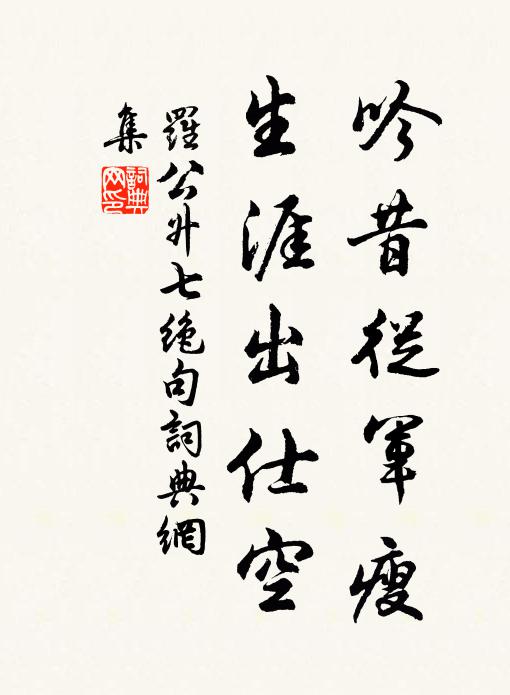 吟昔從軍瘦
生涯出仕空
羅公升七絕句詞典網
集
詞典網印